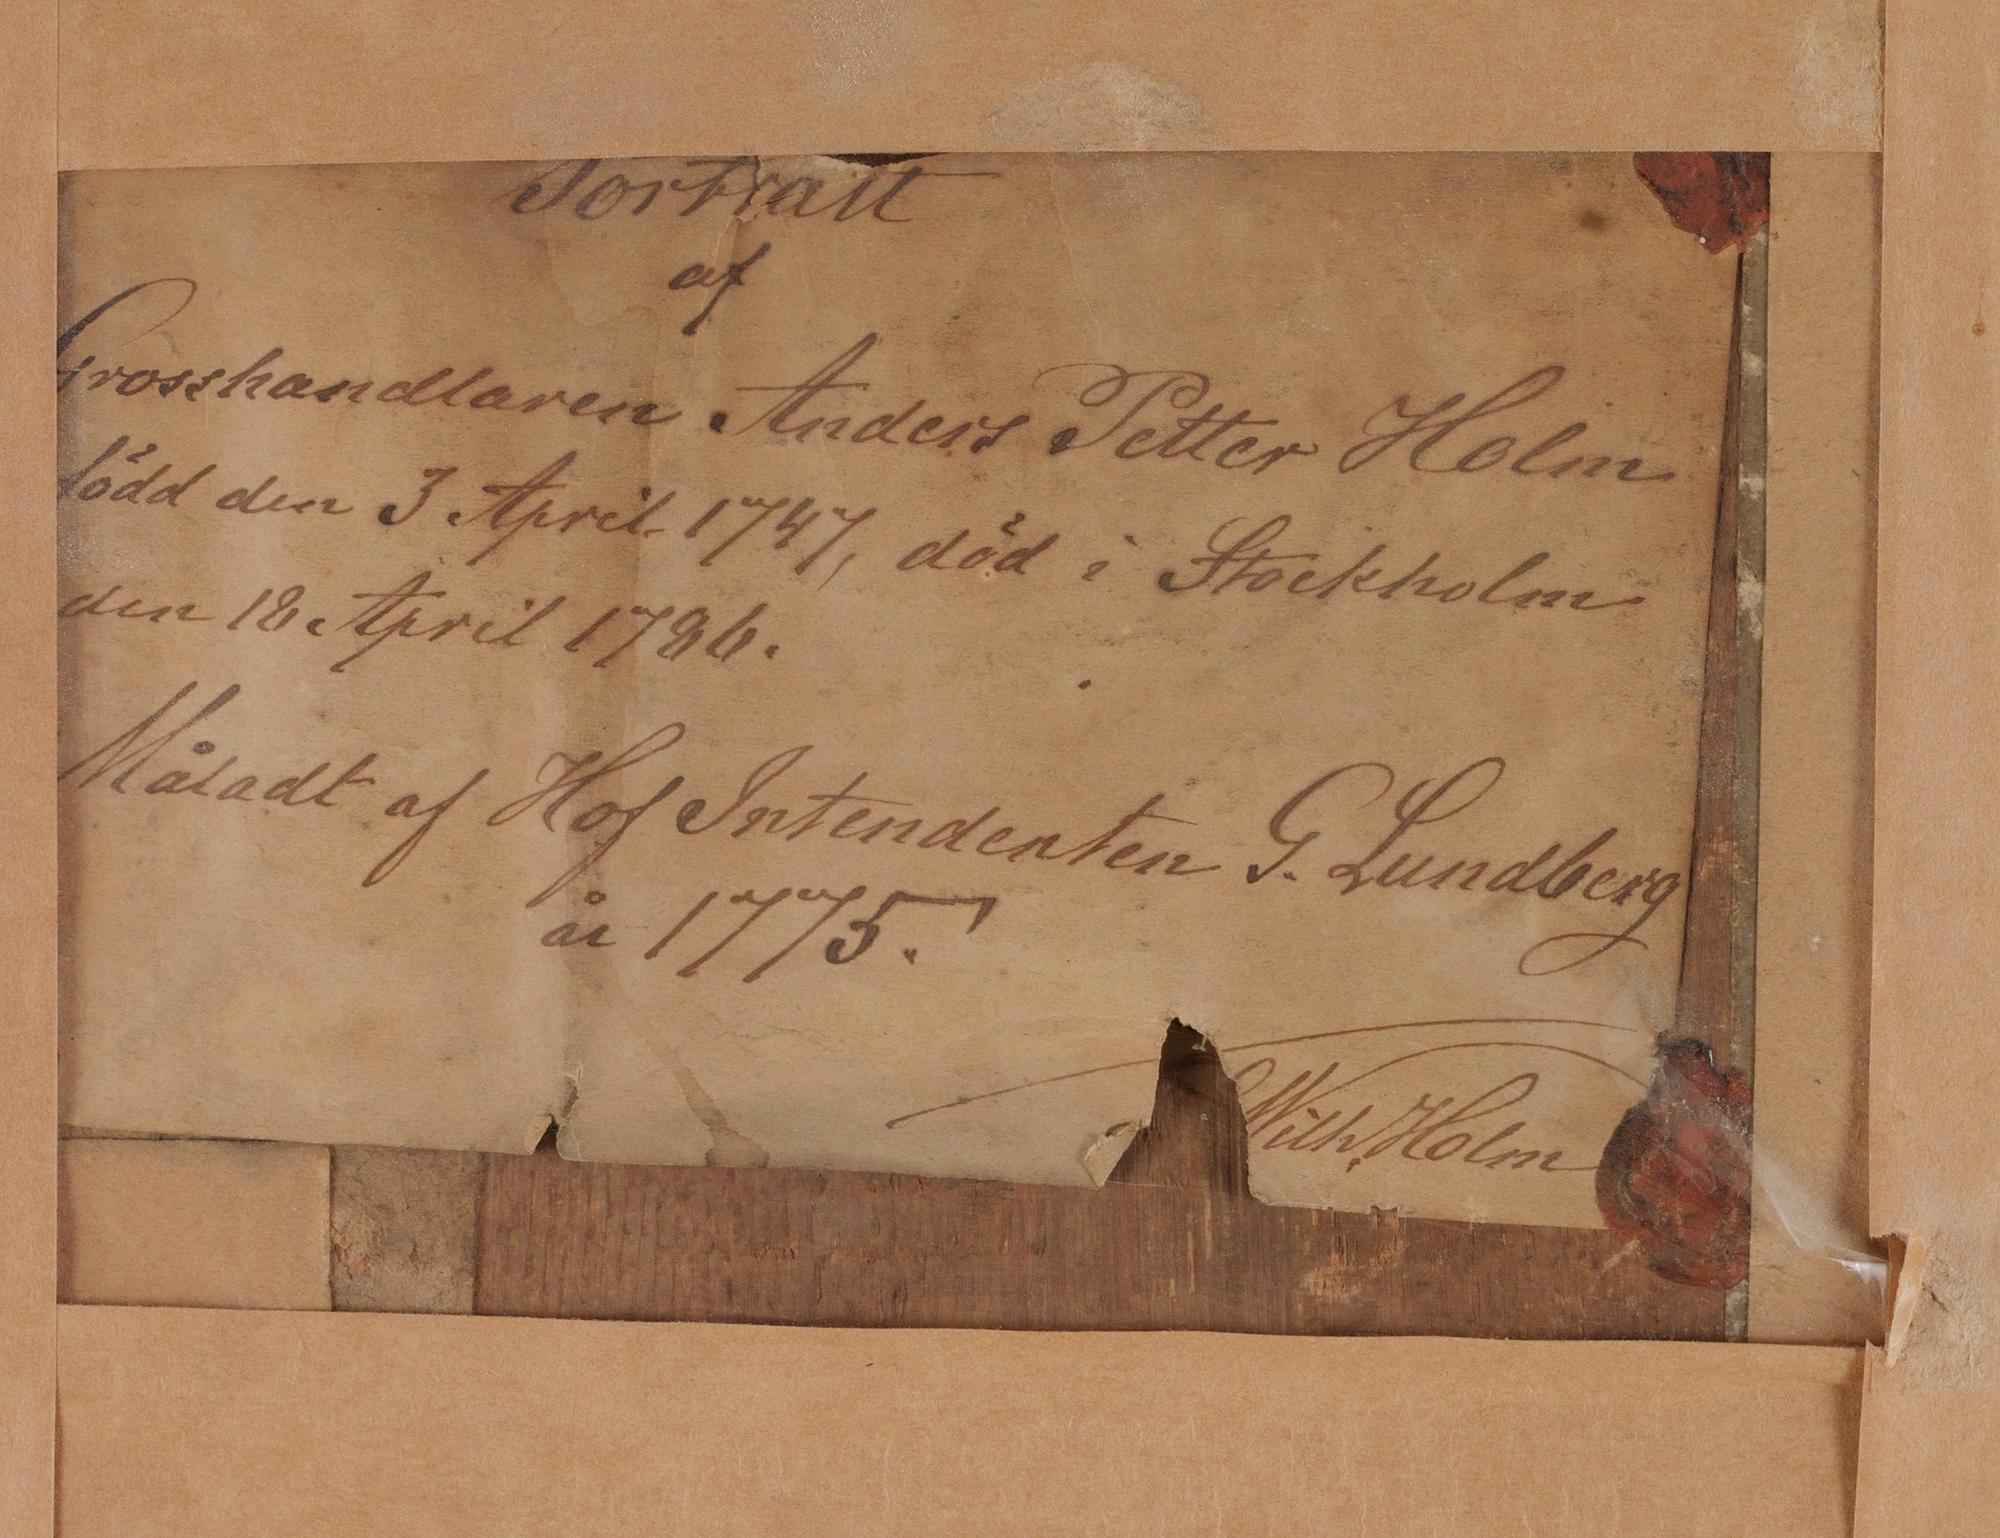 Portrait
af
Grosshandlaren Anders Petter Holm
född den 3 April 1747, död i Stockholm
den 18 April 1786.
Måladt af Hof Intendenten G. Lundberg
år 1775.
Wilh. Holm